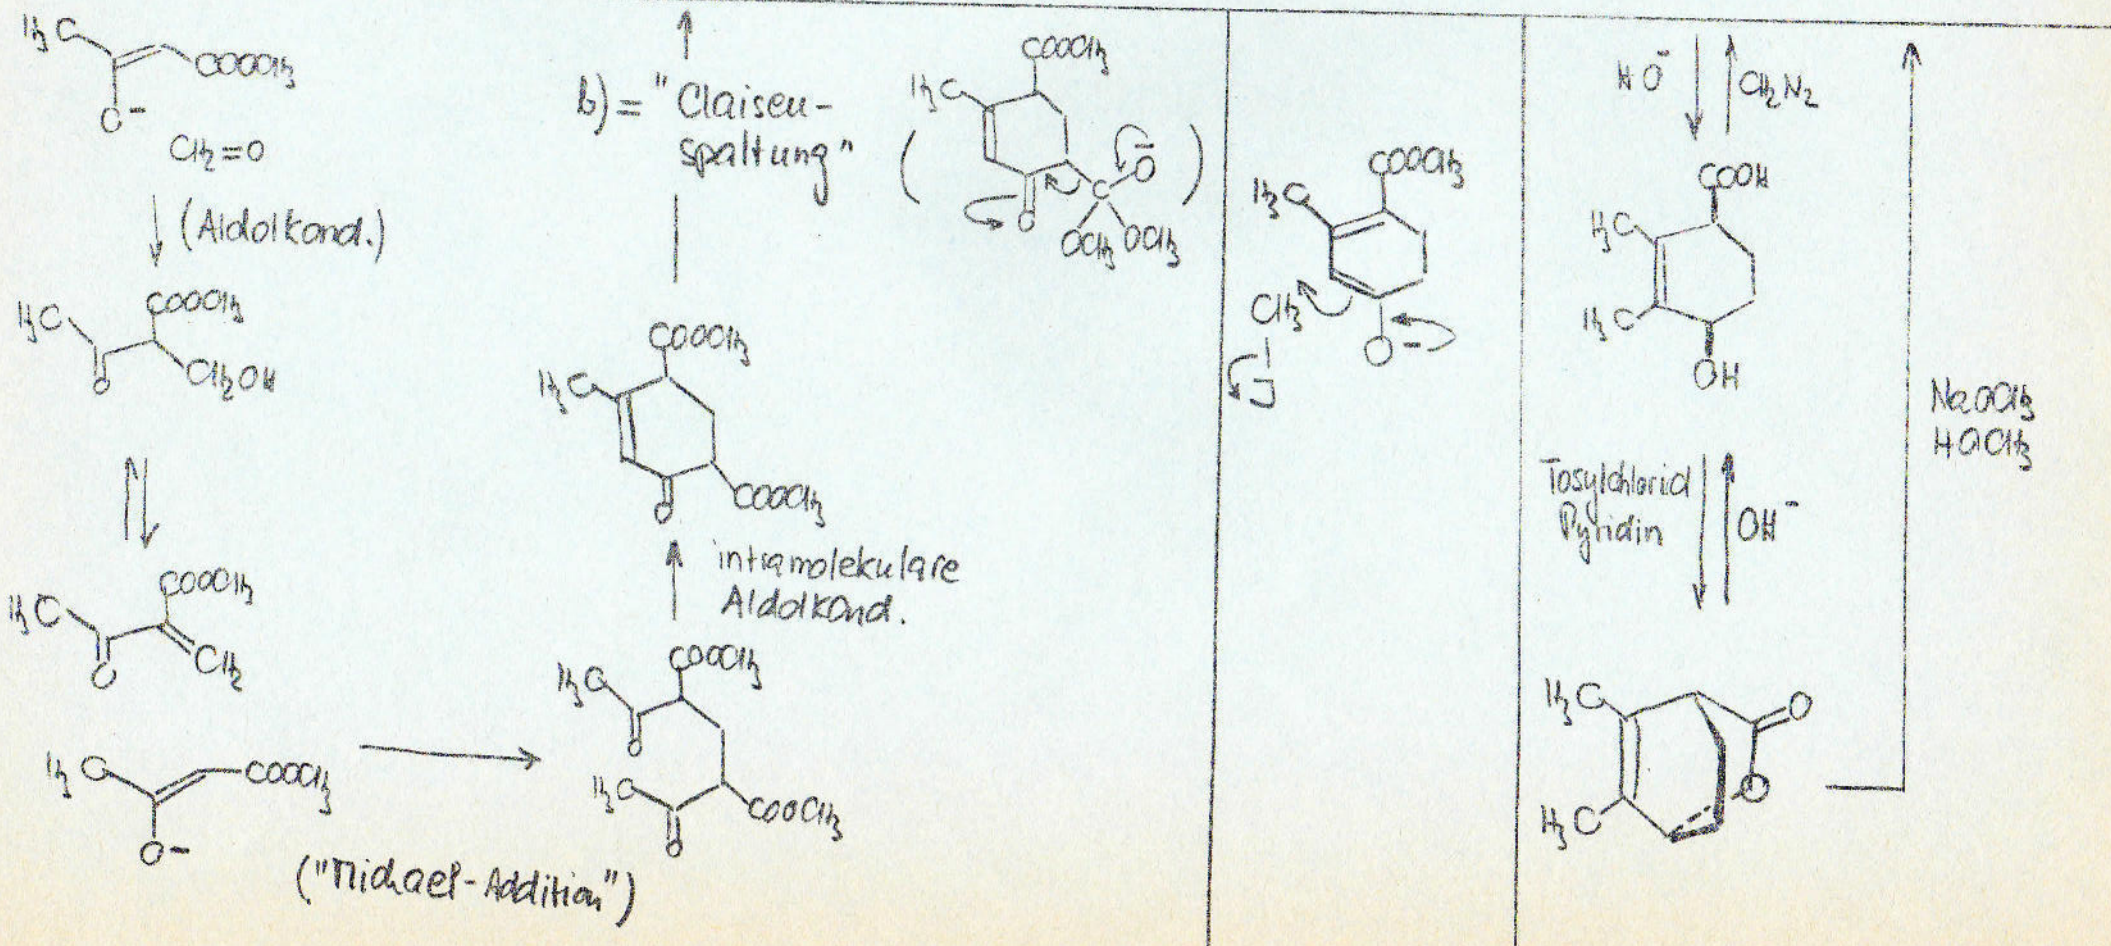 H3C
COOCH3
O-
CH2=O
(Aldolkond.)
H3C
COOCH3
O
CH2OH
COOCH3
H3C
O
CH2
H3C
COOCH3
O-
("Michael-Addition")
b) = "Claisen-
spaltung"
COOCH3
H3C
O
C
O
OCH3 OCH3
COOCH3
H3C
O
COOCH3
intramolekulare
Aldolkond.
COOCH3
H3C
O
H3C
COOCH3
O
COOCH3
H3C
CH3
O-
J
HO-
CH2N2
COOH
H3C
H3C
OH
Tosylchlorid
Pyridin
OH-
H3C
O
O
H3C
NaOCH3
HOCH3